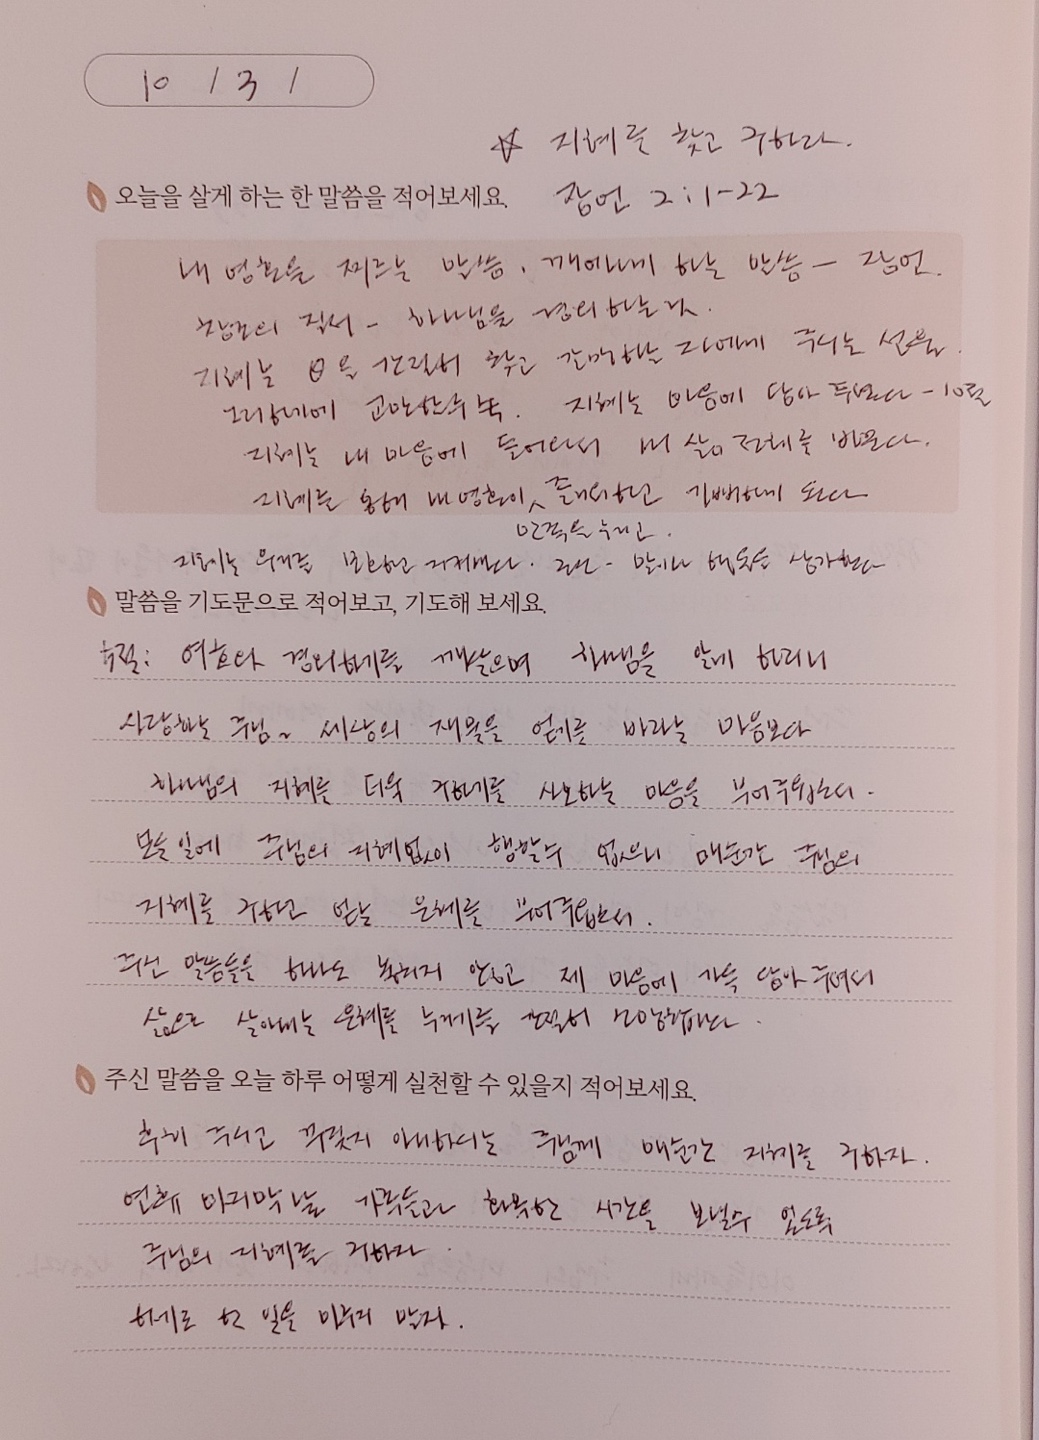 10 / 3 /
☆ 지혜를 찾고 구하라.
오늘을 살게 하는 한 말씀을 적어보세요. 잠언 2:1-22
내 영혼을 찌르는 말씀, 깨어나게 하는 말씀 - 잠언.
창조의 질서 - 하나님을 경외하는 것.
지혜는 을 간절히 찾고 갈망하는 자에게 주시는 선물.
지혜는 마음에 담아 - 10절
지혜는 내 마음에 들어와서 내 삶의 전체를 바꾼다.
지혜를 통해 내 영혼이 즐거워하고 기뻐하게 된다
만족을 누리고.
말이나 행동을
말씀을 기도문으로 적어보고, 기도해 보세요.
5절: 여호와 경외하기를 깨달으며 하나님을 알게 되리니
사랑하는 주님~ 세상의 재물을 얻기를 바라는 마음보다
하나님의 지혜를 더욱 구하기를 사모하는 마음을 부어주옵소서.
모든 일에 주님의 지혜없이 행할수 없으니 매순간 주님의
지혜를 구하고 얻는 은혜를 부어주옵소서.
주신 말씀들을 하나도 놓치지 않고 제 마음에 가득 담아 주셔서
삶으로 살아내는 은혜를 누리기를 간절히 소망합니다.
주신 말씀을 오늘 하루 어떻게 실천할 수 있을지 적어보세요.
후히 주시고 꾸짖지 아니하시는 주님께 매순간 지혜를 구하자.
연휴 마지막날 가족들과 화목한 시간을 보낼수 있도록
주님의 지혜를 구하자.
할 일을 미루지 말자.